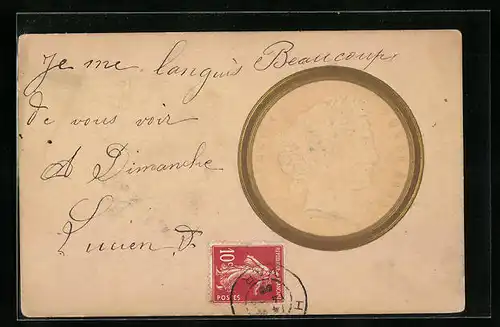 Je me languis Beaucoup
de vous voir
A Dimanche
Lucien F.
10
POSTES